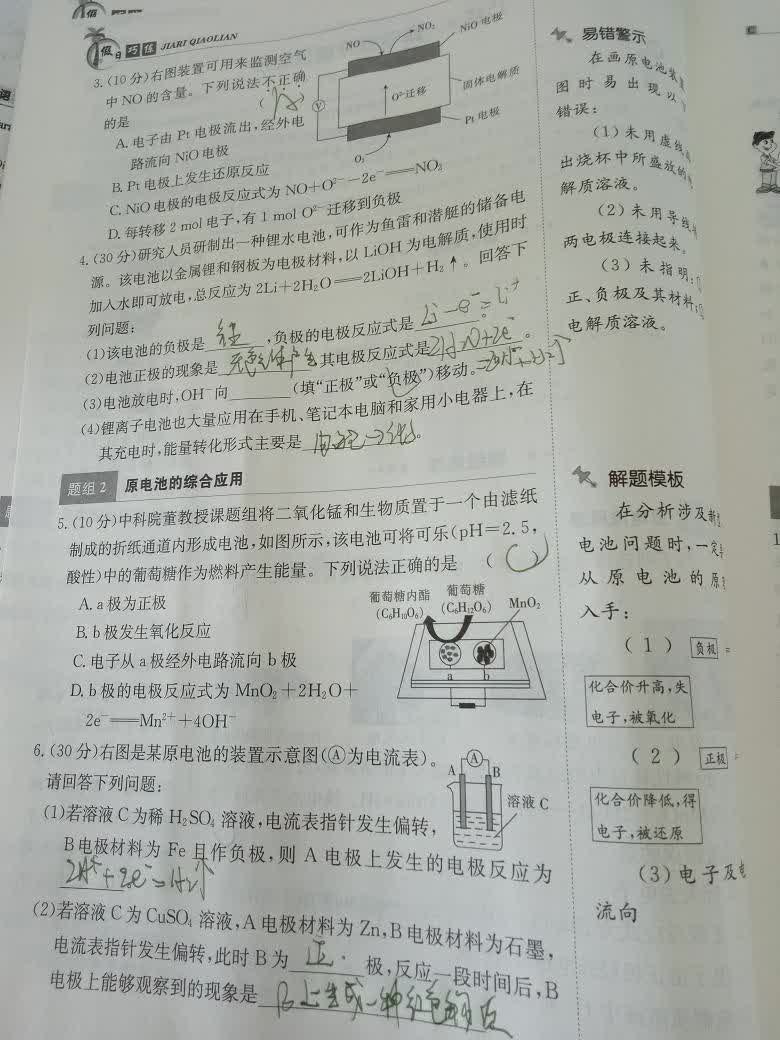 假日 巧练 JIARI QIAOLIAN
3.(10分)右图装置可用来监测空气
中NO的含量。下列说法不正确
的是
A.电子由Pt电极流出,经外电
路流向NiO电极
B.Pt电极上发生还原反应
C.NiO电极的电极反应式为NO+O²⁻-2e⁻══NO₂
D.每转移2 mol电子,有1 mol O²⁻迁移到负极
NO
NO₂
NiO电极
固体电解质
O²⁻迁移
V
Pt电极
O₂
4.(30分)研究人员研制出一种锂水电池,可作为鱼雷和潜艇的储备电
源。该电池以金属锂和钢板为电极材料,以LiOH为电解质,使用时
加入水即可放电,总反应为2Li+2H₂O══2LiOH+H₂↑。回答下
列问题:
(1)该电池的负极是 锂 ,负极的电极反应式是 Li-e⁻=Li⁺
(2)电池正极的现象是 无色气体产生 其电极反应式是 2H₂O+2e⁻=2OH⁻+H₂↑。
(3)电池放电时,OH⁻向________(填“正极”或“负极”)移动。
(4)锂离子电池也大量应用在手机、笔记本电脑和家用小电器上,在
其充电时,能量转化形式主要是 。
题组2 原电池的综合应用
5.(10分)中科院董教授课题组将二氧化锰和生物质置于一个由滤纸
制成的折纸通道内形成电池,如图所示,该电池可将可乐(pH=2.5,
酸性)中的葡萄糖作为燃料产生能量。下列说法正确的是 ( C )
A.a极为正极
B.b极发生氧化反应
C.电子从a极经外电路流向b极
D.b极的电极反应式为MnO₂+2H₂O+
2e⁻══Mn²⁺+4OH⁻
葡萄糖内酯 葡萄糖
(C₆H₁₀O₆) (C₆H₁₂O₆) MnO₂
a b
6.(30分)右图是某原电池的装置示意图(Ⓐ为电流表)。
请回答下列问题:
(1)若溶液C为稀H₂SO₄溶液,电流表指针发生偏转,
B电极材料为Fe且作负极,则A电极上发生的电极反应为
2H⁺+2e⁻=H₂↑
A A B
溶液C
(2)若溶液C为CuSO₄溶液,A电极材料为Zn,B电极材料为石墨,
电流表指针发生偏转,此时B为 正 极,反应一段时间后,B
电极上能够观察到的现象是 B上生成一种红色物质
易错警示
在画原电池装
图时易出现以
错误:
(1)未用虚线
出烧杯中所盛放的
解质溶液。
(2)未用导线
两电极连接起来。
(3)未指明:①
正、负极及其材料;②
电解质溶液。
解题模板
在分析涉及新型
电池问题时,一定
从原电池的原
入手:
(1) 负极 =
化合价升高,失
电子,被氧化
(2) 正极
化合价降低,得
电子,被还原
(3)电子及电
流向